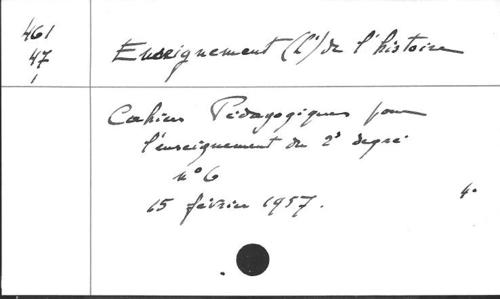 461
47
1
Enseignement (L') de l'histoire
Cahiers Pédagogiques pour
l'enseignement du 2d degré
n° 6
15 février 1957.
4°